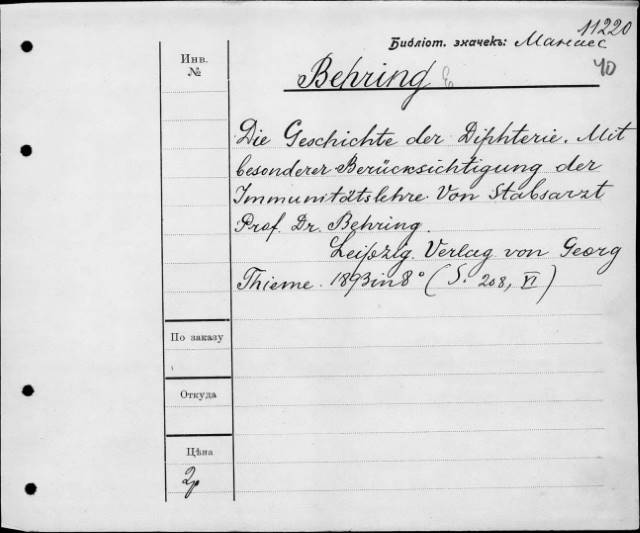 11220
Библіот. значекъ: Манасс
40
Инв.
№
Behring E
Die Geschichte der Diphterie. Mit
besonderer Berücksichtigung der
Immunitätslehre. Von Stabsarzt
Prof. Dr. Behring.
Leipzig. Verlag von Georg
Thieme. 1893 in 8° (S. 208, VI)
По заказу
Откуда
Цѣна
2р